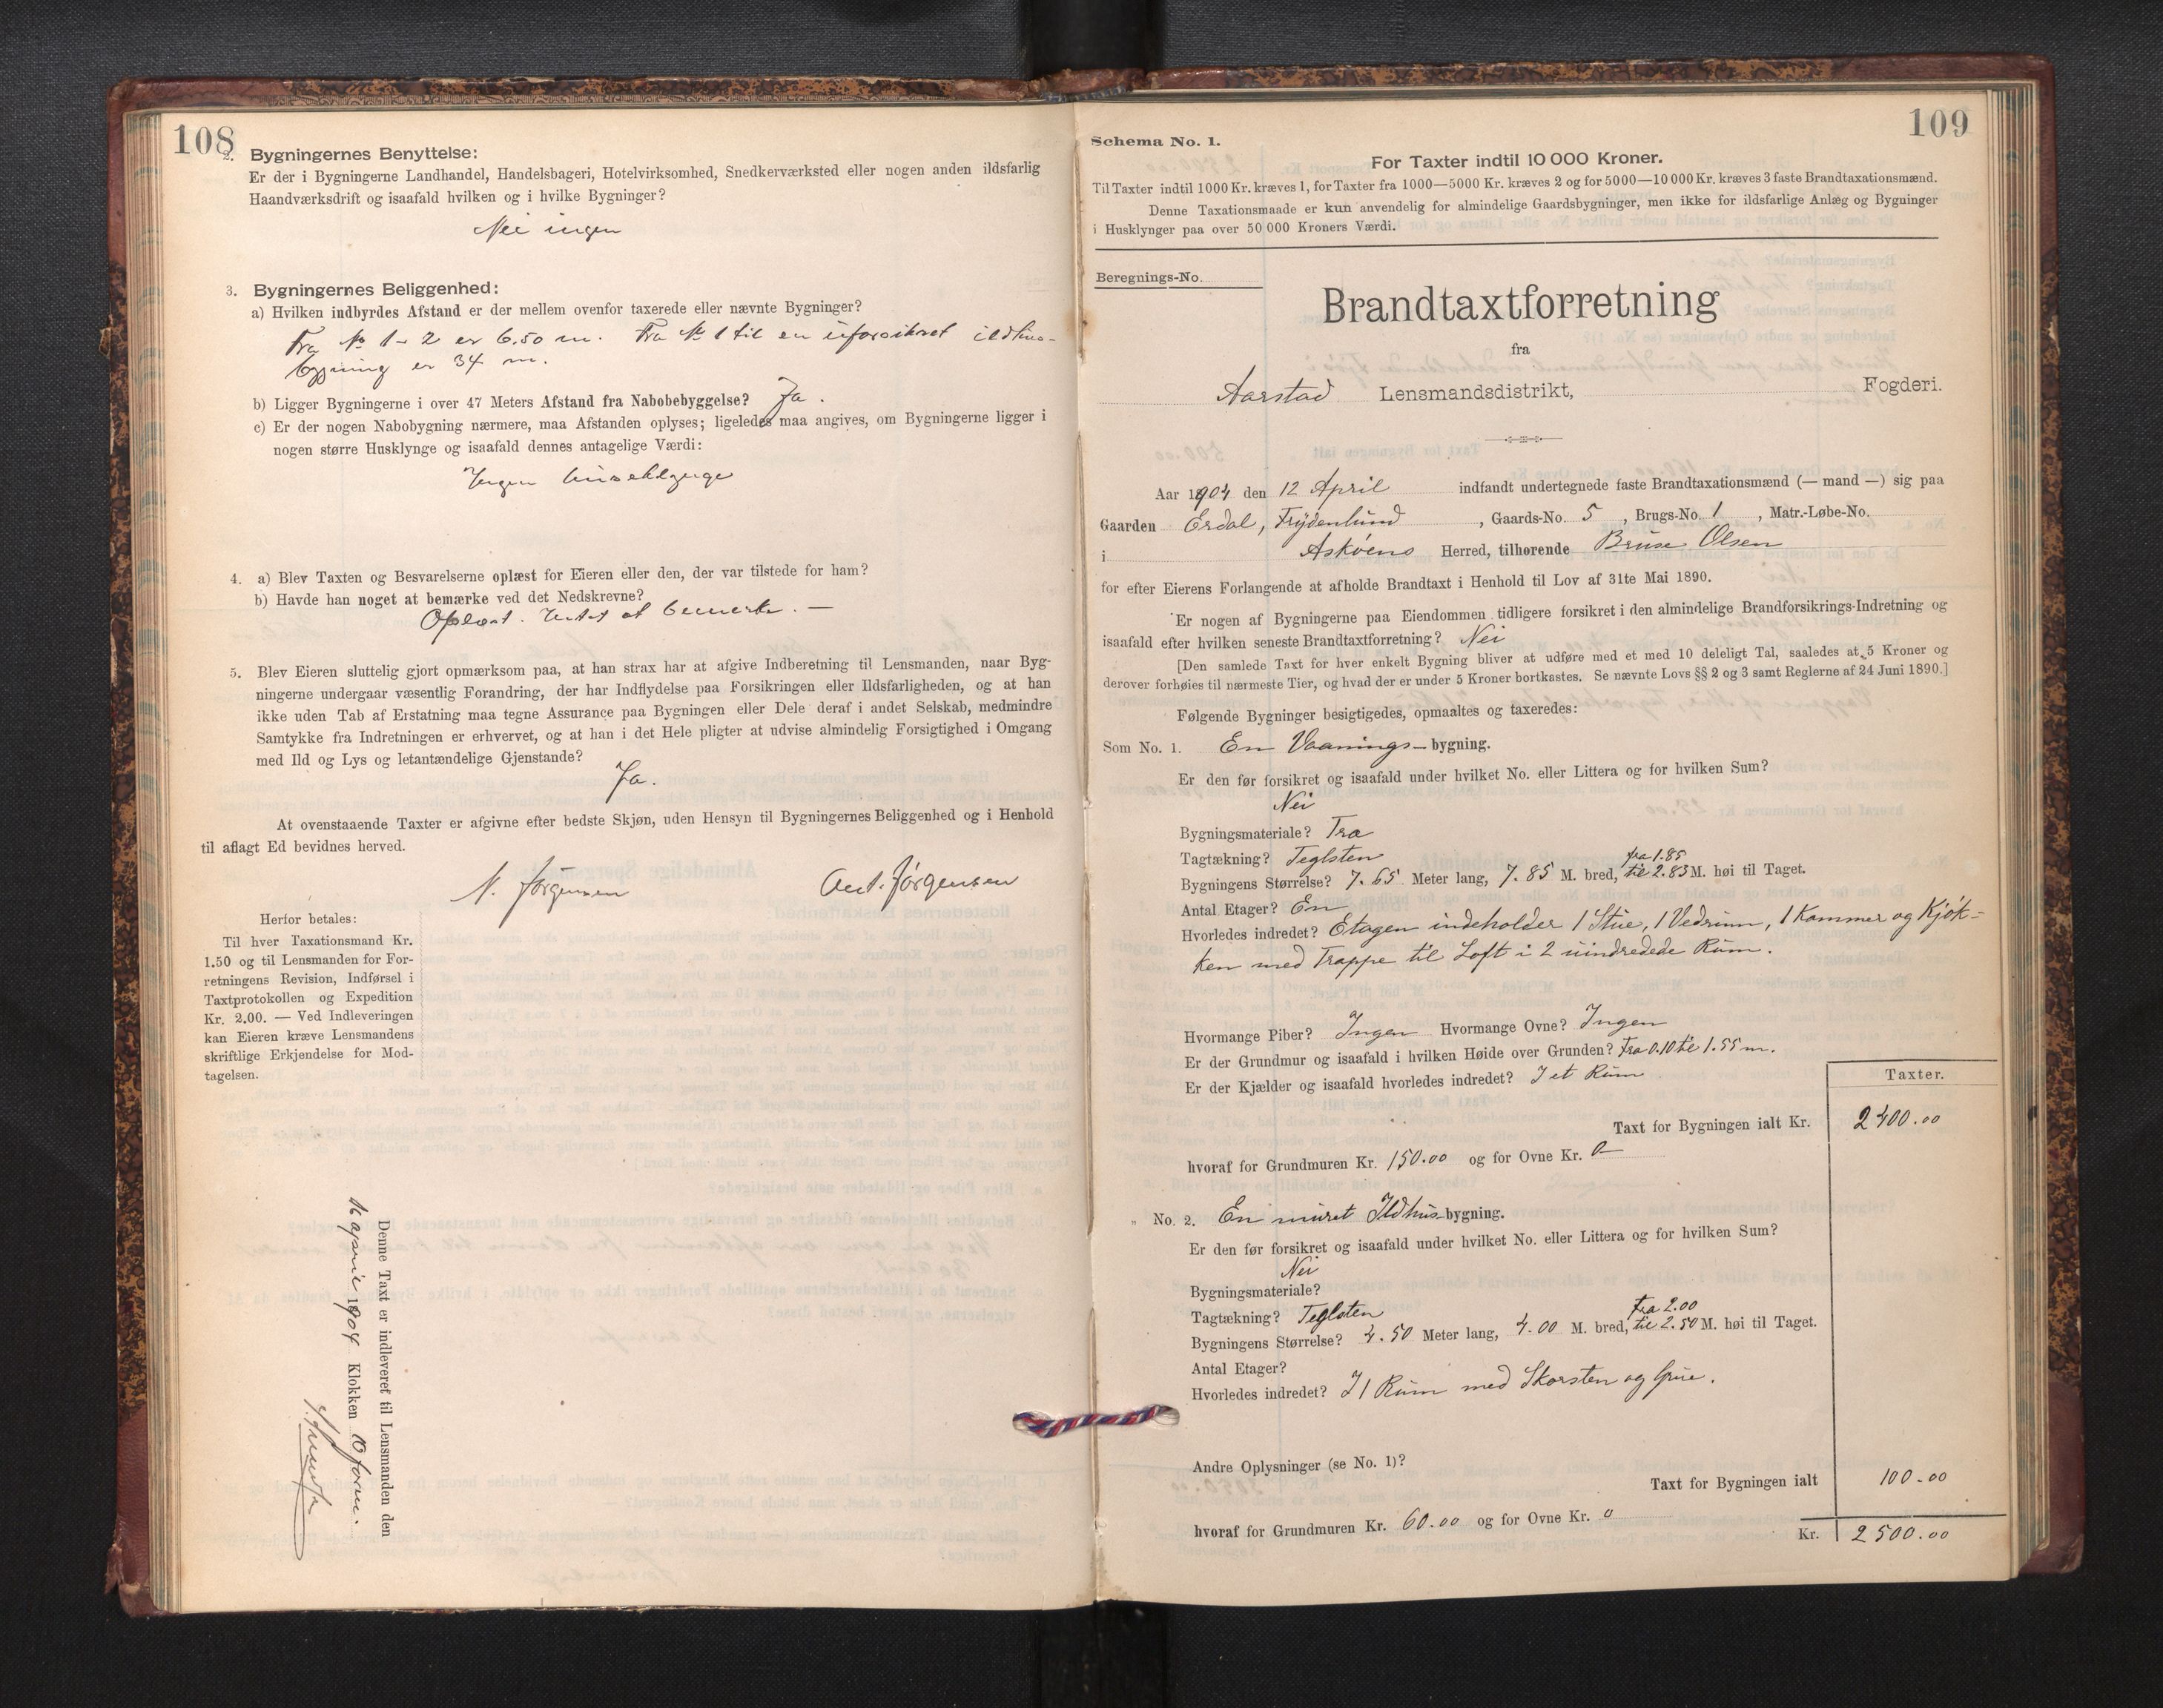 108
2. Bygningernes Benyttelse:
Er der i Bygningerne Landhandel, Handelsbageri, Hotelvirksomhed, Snedkerværksted eller nogen anden ildsfarlig
Haandværksdrift og isaafald hvilken og i hvilke Bygninger?
Nei ingen
3. Bygningernes Beliggenhed:
a) Hvilken indbyrdes Afstand er der mellem ovenfor taxerede eller nævnte Bygninger?
Fra No 1–2 er 6.50 m. Fra No 1 til en uforsikret ildhus-
bygning er 34 m.
b) Ligger Bygningerne i over 47 Meters Afstand fra Nabobebyggelse? Ja.
c) Er der nogen Nabobygning nærmere, maa Afstanden oplyses; ligeledes maa angives, om Bygningerne ligger i
nogen større Husklynge og isaafald dennes antagelige Værdi:
Ingen
4. a) Blev Taxten og Besvarelserne oplæst for Eieren eller den, der var tilstede for ham?
b) Havde han noget at bemærke ved det Nedskrevne?
Oplæst. Intet at bemerke. —
5. Blev Eieren sluttelig gjort opmærksom paa, at han strax har at afgive Indberetning til Lensmanden, naar Byg-
ningerne undergaar væsentlig Forandring, der har Indflydelse paa Forsikringen eller Ildsfarligheden, og at han
ikke uden Tab af Erstatning maa tegne Assurance paa Bygningen eller Dele deraf i andet Selskab, medmindre
Samtykke fra Indretningen er erhvervet, og at han i det Hele pligter at udvise almindelig Forsigtighed i Omgang
med Ild og Lys og letantændelige Gjenstande?
Ja.
At ovenstaaende Taxter er afgivne efter bedste Skjøn, uden Hensyn til Bygningernes Beliggenhed og i Henhold
til aflagt Ed bevidnes herved.
N. Jørgensen Ant. Jørgensen
Herfor betales:
Til hver Taxationsmand Kr.
1.50 og til Lensmanden for For-
retningens Revision, Indførsel i
Taxtprotokollen og Expedition
Kr. 2.00. — Ved Indleveringen
kan Eieren kræve Lensmandens
skriftlige Erkjendelse for Mod-
tagelsen.
Denne Taxt er indleveret til Lensmanden den
16 april 1904 Klokken 10 form.
109
Schema No. 1.
For Taxter indtil 10 000 Kroner.
Til Taxter indtil 1000 Kr. kræves 1, for Taxter fra 1000—5000 Kr. kræves 2 og for 5000—10 000 Kr. kræves 3 faste Brandtaxationsmænd.
Denne Taxationsmaade er kun anvendelig for almindelige Gaardsbygninger, men ikke for ildsfarlige Anlæg og Bygninger
i Husklynger paa over 50 000 Kroners Værdi.
Beregnings-No.
Brandtaxtforretning
fra
Aarstad Lensmandsdistrikt, Fogderi.
Aar 1904 den 12 April indfandt undertegnede faste Brandtaxationsmænd (— mand —) sig paa
Gaarden Erdal, Frydenlund, Gaards-No. 5, Brugs-No. 1, Matr.-Løbe-No.
i Askøens Herred, tilhørende Bruse Olsen
for efter Eierens Forlangende at afholde Brandtaxt i Henhold til Lov af 31te Mai 1890.
Er nogen af Bygningerne paa Eiendommen tidligere forsikret i den almindelige Brandforsikrings-Indretning og
isaafald efter hvilken seneste Brandtaxtforretning? Nei
[Den samlede Taxt for hver enkelt Bygning bliver at udføre med et med 10 deleligt Tal, saaledes at 5 Kroner og
derover forhøies til nærmeste Tier, og hvad der er under 5 Kroner bortkastes. Se nævnte Lovs §§ 2 og 3 samt Reglerne af 24 Juni 1890.]
Følgende Bygninger besigtigedes, opmaaltes og taxeredes:
Som No. 1. En Vaanings-bygning.
Er den før forsikret og isaafald under hvilket No. eller Littera og for hvilken Sum?
Nei
Bygningsmateriale? Træ
Tagtækning? Teglsten
Bygningens Størrelse? 7.65 Meter lang, 7.85 M. bred, fra 1.85 til 2.83 M. høi til Taget.
Antal Etager? En
Hvorledes indredet? Etagen indeholder 1 Stue, 1 Vedrum, 1 Kammer og Kjøk-
ken med Trappe til Loft i 2 uindredede Rum.
Hvormange Piber? Ingen Hvormange Ovne? Ingen
Er der Grundmur og isaafald i hvilken Høide over Grunden? Fra 0.10 til 1.55 m.
Er der Kjælder og isaafald hvorledes indredet? I et Rum
Taxter.
Taxt for Bygningen ialt Kr. 2400.00
hvoraf for Grundmuren Kr. 150.00 og for Ovne Kr. 0
" No. 2. En muret Ildhusbygning.
Er den før forsikret og isaafald under hvilket No. eller Littera og for hvilken Sum?
Nei
Bygningsmateriale?
Tagtækning? Teglsten
Bygningens Størrelse? 4.50 Meter lang, 4.00 M. bred, fra 2.00 til 2.50 M. høi til Taget.
Antal Etager?
Hvorledes indredet? I 1 Rum med Skorsten og Grue.
Andre Oplysninger (se No. 1)?
Taxt for Bygningen ialt 100.00
hvoraf for Grundmuren Kr. 60.00 og for Ovne Kr. 0
Kr. 2500.00